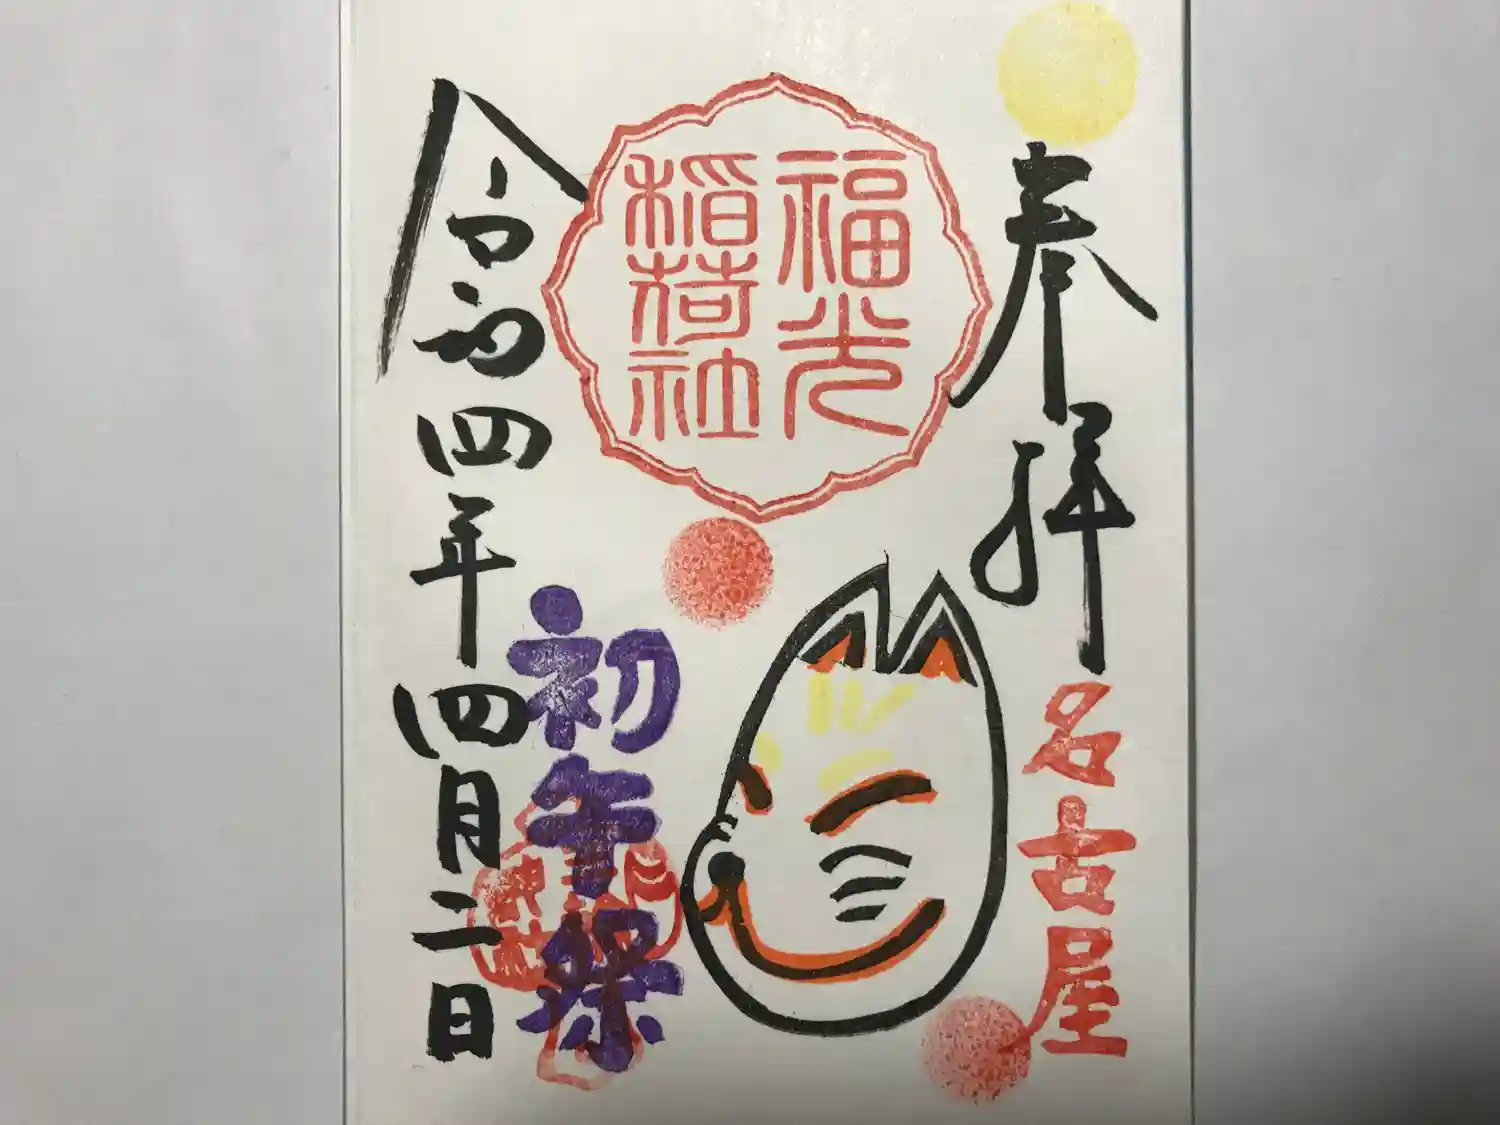 奉拝
名古屋
福光
稲荷社
初午祭
令和四年四月二日